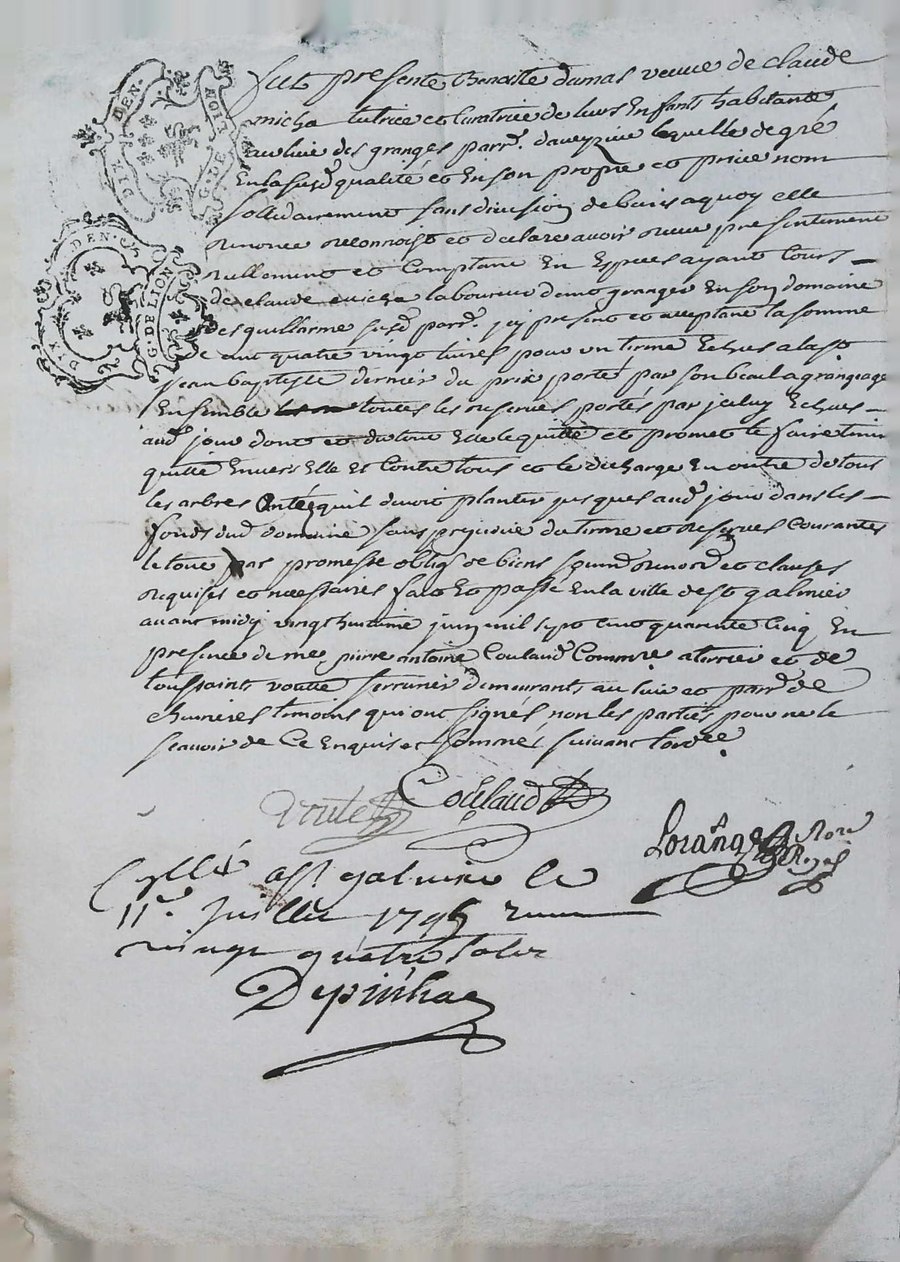 DIX DEN.
G. DE LION
DIX DEN.
G. DE LION
fut presente Benoite damas veuve de claude
micha tutrice et Curatrice de leurs Enfants habitante
au lieu des granges parr. daveyzieu lequelle de gré
En la susd qualité et En son propre et privé nom
sollidairement sans division de biens aquoy elle
renonce reconnoist et declare avoir receu presentement
reellement et Comptant En Especes ayant Cours
de claude laboureur granger En son domaine
des guillarme susd parr. jcy present et acceptant la somme
de cent quatre vingt livres pour un terme Echus a la st
jean baptiste dernier du prix porté par son bail a grangeage
Ensemble toutes les reserves portés par jceluy Echues
aud jour dont et du tout Elle le quitte et promet le faire tenir
quitte Envers Elle et Contre tous et le decharge En outre de tous
les arbres Entés quil devoit planter jusques aud jour dans les
fonds dud domaine sans prejudice du terme et reserves Courantes
le tout par promesse oblig de biens renon et clauses
requises et necessaires fait Et passé En la ville de st galmier
avant midy vingt huitieme juin mil sept cent quarante Cinq En
presence de me pierre antoine Coulaud Commre a terrier et de
toussaints voutte serrurier demeurants au lieu et parr de
chevrieres temoins qui ont signés non les parties pour ne le
scavoir de Ce Enquis et sommés suivant lord
Coulaud
voute
Lorange Nore
Royal
Csllé a st galmier le
11e. Juillet 1745 receu
vingt quatre sols
Depinhac